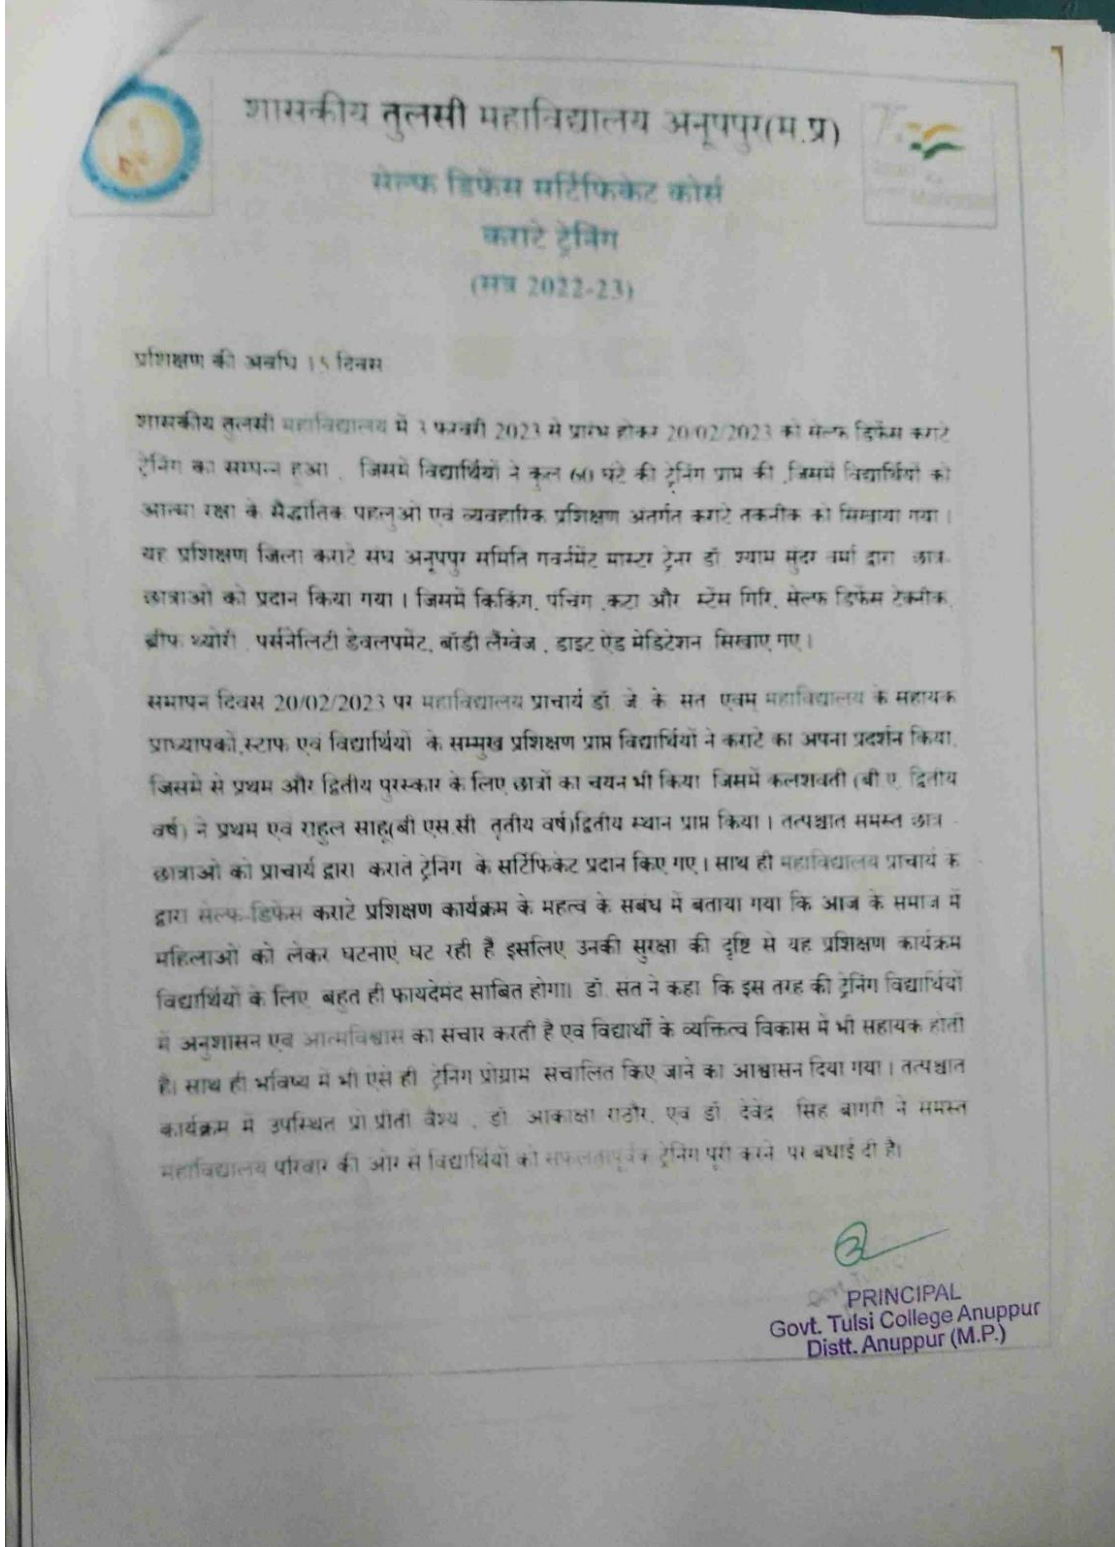 शासकीय तुलसी महाविद्यालय अनूपपुर(म.प्र)
सेल्फ डिफेंस सर्टिफिकेट कोर्स
कराटे ट्रेनिंग
(सत्र 2022-23)
प्रशिक्षण की अवधि 15 दिवस
शासकीय तुलसी महाविद्यालय में 3 फरवरी 2023 से प्रारंभ होकर 20/02/2023 को सेल्फ डिफेंस कराटे
ट्रेनिंग का सम्पन्न हुआ , जिसमें विद्यार्थियों ने कुल 60 घंटे की ट्रेनिंग प्राप्त की ,जिसमें विद्यार्थियों को
आत्मा रक्षा के सैद्धांतिक पहलुओं एवं व्यवहारिक प्रशिक्षण अंतर्गत कराटे तकनीक को सिखाया गया ।
यह प्रशिक्षण जिला कराटे संघ अनूपपुर समिति गवर्नमेंट मास्टर ट्रेनर डॉ. श्याम सुंदर वर्मा द्वारा छात्र-
छात्राओं को प्रदान किया गया । जिसमें किकिंग, पंचिंग ,कटा और स्टेंस गिरि, सेल्फ डिफेंस टेक्नीक,
ब्रीफ थ्योरी , पर्सनेलिटी डेवलपमेंट, बॉडी लैंग्वेज , डाइट ऐंड मेडिटेशन सिखाए गए ।
समापन दिवस 20/02/2023 पर महाविद्यालय प्राचार्य डॉ. जे के संत एवम महाविद्यालय के सहायक
प्राध्यापकों,स्टाफ एवं विद्यार्थियों के सम्मुख प्रशिक्षण प्राप्त विद्यार्थियों ने कराटे का अपना प्रदर्शन किया,
जिसमें से प्रथम और द्वितीय पुरस्कार के लिए छात्रों का चयन भी किया जिसमें कलशवती (बी.ए. द्वितीय
वर्ष) ने प्रथम एवं राहुल साहू(बी.एस.सी. तृतीय वर्ष)द्वितीय स्थान प्राप्त किया । तत्पश्चात समस्त छात्र -
छात्राओं को प्राचार्य द्वारा कराते ट्रेनिंग के सर्टिफिकेट प्रदान किए गए । साथ ही महाविद्यालय प्राचार्य के
द्वारा सेल्फ डिफेंस कराटे प्रशिक्षण कार्यक्रम के महत्व के संबंध में बताया गया कि आज के समाज में
महिलाओं को लेकर घटनाएं घट रही हैं इसलिए उनकी सुरक्षा की दृष्टि से यह प्रशिक्षण कार्यक्रम
विद्यार्थियों के लिए बहुत ही फायदेमंद साबित होगा। डॉ. संत ने कहा कि इस तरह की ट्रेनिंग विद्यार्थियों
में अनुशासन एवं आत्मविश्वास का संचार करती है एवं विद्यार्थी के व्यक्तित्व विकास में भी सहायक होती
है। साथ ही भविष्य में भी ऐसे ही ट्रेनिंग प्रोग्राम संचालित किए जाने का आश्वासन दिया गया । तत्पश्चात
कार्यक्रम में उपस्थित प्रो.प्रीती वैश्य , डॉ. आकांक्षा राठौर, एवं डॉ. देवेंद्र सिंह बागरी ने समस्त
महाविद्यालय परिवार की ओर से विद्यार्थियों को सफलतापूर्वक ट्रेनिंग पूरी करने पर बधाई दी है।
PRINCIPAL
Govt. Tulsi College Anuppur
Distt. Anuppur (M.P.)